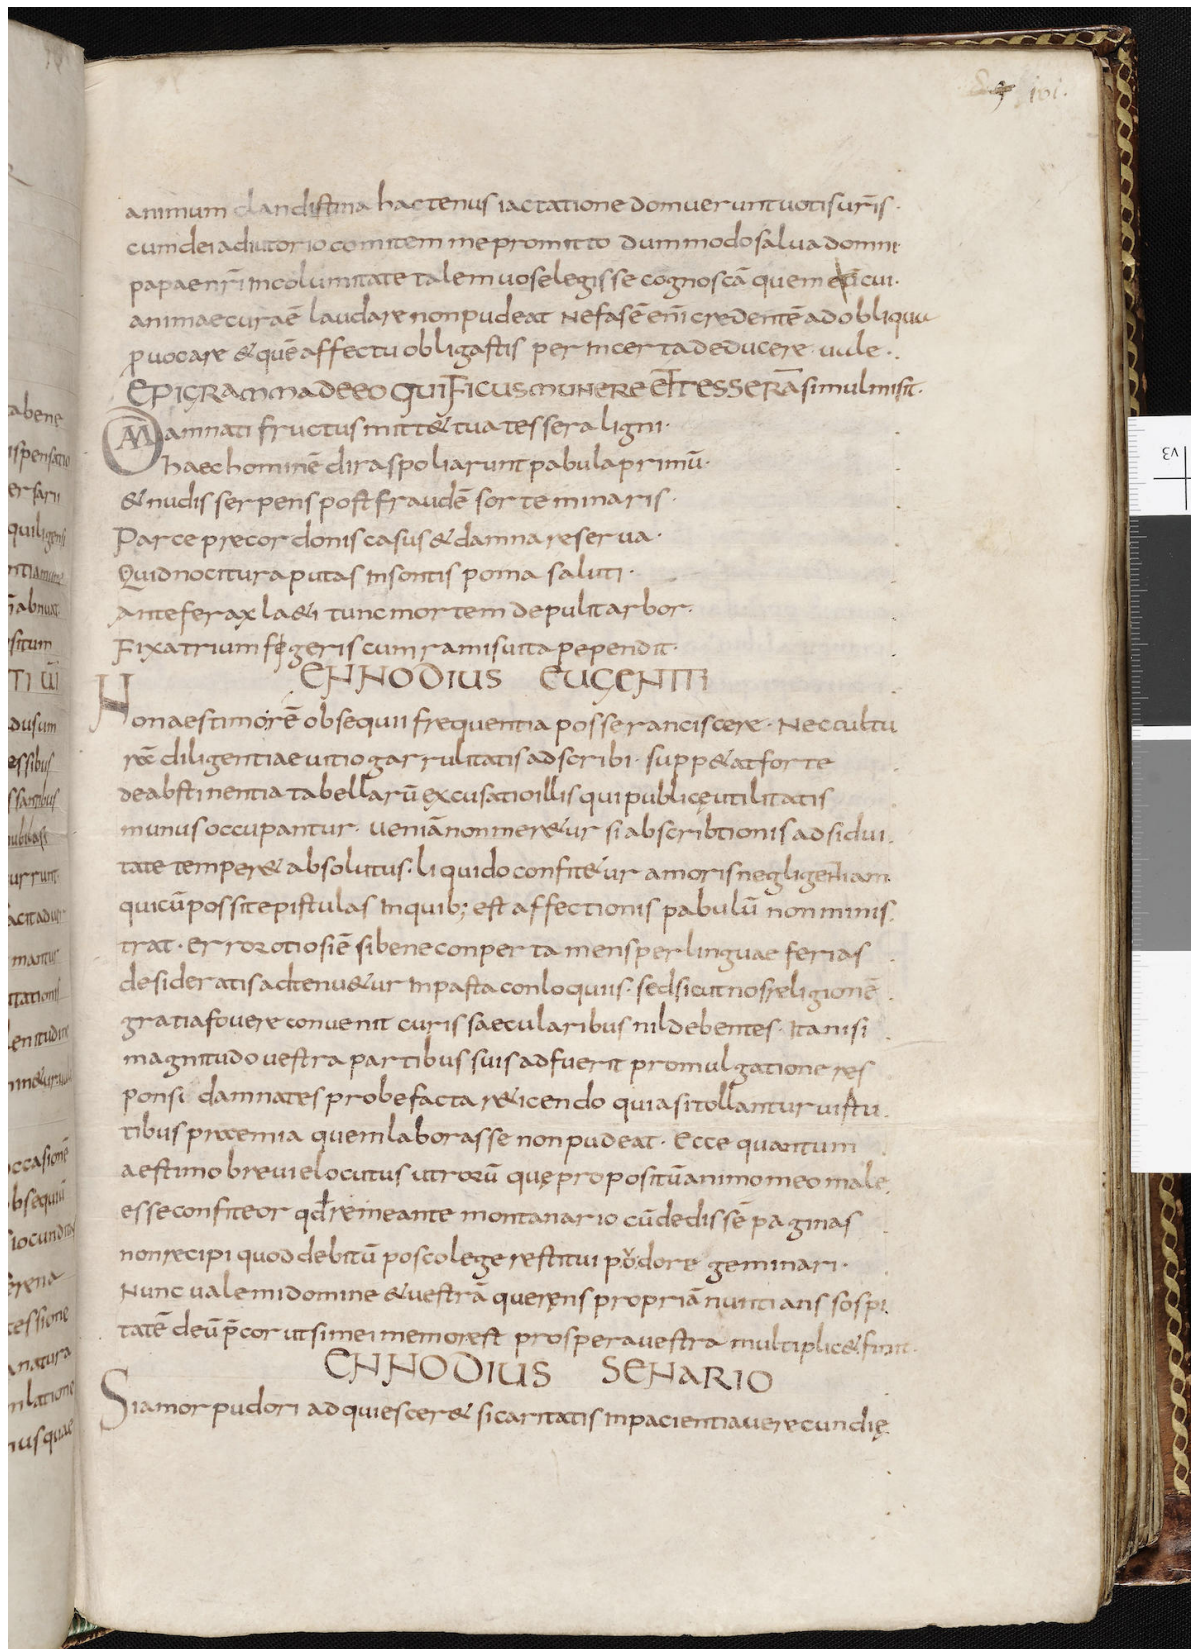 101.
animum clandistina hactenus iactatione domuerunt uotis urı̄s.
cum dei adiutorio comitem me promitto dummodo salua domni
papae nrı̄ incolumitate talem uos elegisse cognoscā quem cui.
animae curaē laudare non pudeat Nefas ē enī credentē ad obliqua
ꝓuocare & quē affectu obligastis per incerta deducere. uale.
EPIGRAMMA DE EO QUI FICUS MUNERE ET TESSERĀ simul misit.
Damnati fructus mitt& tua tessera ligni.
haec hominē dira spoliarunt pabula primū.
& nudis serpens post fraudē sorte minaris.
Parce precor donis casus & damna reserua.
Quid nocitura putas insontis poma saluti.
Ante ferax la&i tunc mortem depulit arbor.
Fixatrium geris cum ramis uita pependit.
ENNODIUS EUGENITI
Non aestimorē obsequii frequentia posse ranciscere. Nec cultu
rēc diligentiae uitio garrulitatis adscribi. supp&at forte
de abstinentia tabellarū excusatio illis qui publicę utilitatis
munus occupantur. ueniā non mer&ur si ab scribtionis adsidui
tate temper& absolutus. liquido confit&ur amoris negligentiam
quicū possit epistulas in quib; est affectionis pabulū non minis
trat. error otiosiē si bene conperta mens per linguae ferias
desideratis actenu&ur inpasta conloquiis. sed sicut nos religionē
gratia fouere conuenit curis saecularibus nil debentes. Ita nisi
magnitudo uestra partibus suis adfuerit promulgatione res
ponsi damnates probe facta r&icendo quia si tollantur uistu
tibus proemia quem laborasse non pudeat. Ecce quantum
aestimo breui elocutus utrorū quę propositū animo meo male
esse confiteor qđ remeante montanario cū dedissē paginas
non recipi quod debitū posco lege restitui pudore geminari.
Nunc uale mi domine & uestrā querens propriā nuntians sospi
tatē deū p̄cor ut si mei memor est prospera uestra multiplic& fiunt.
ENNODIUS SENARIO
Si amor pudori adquiescer& si caritatis inpacientia uerecundię